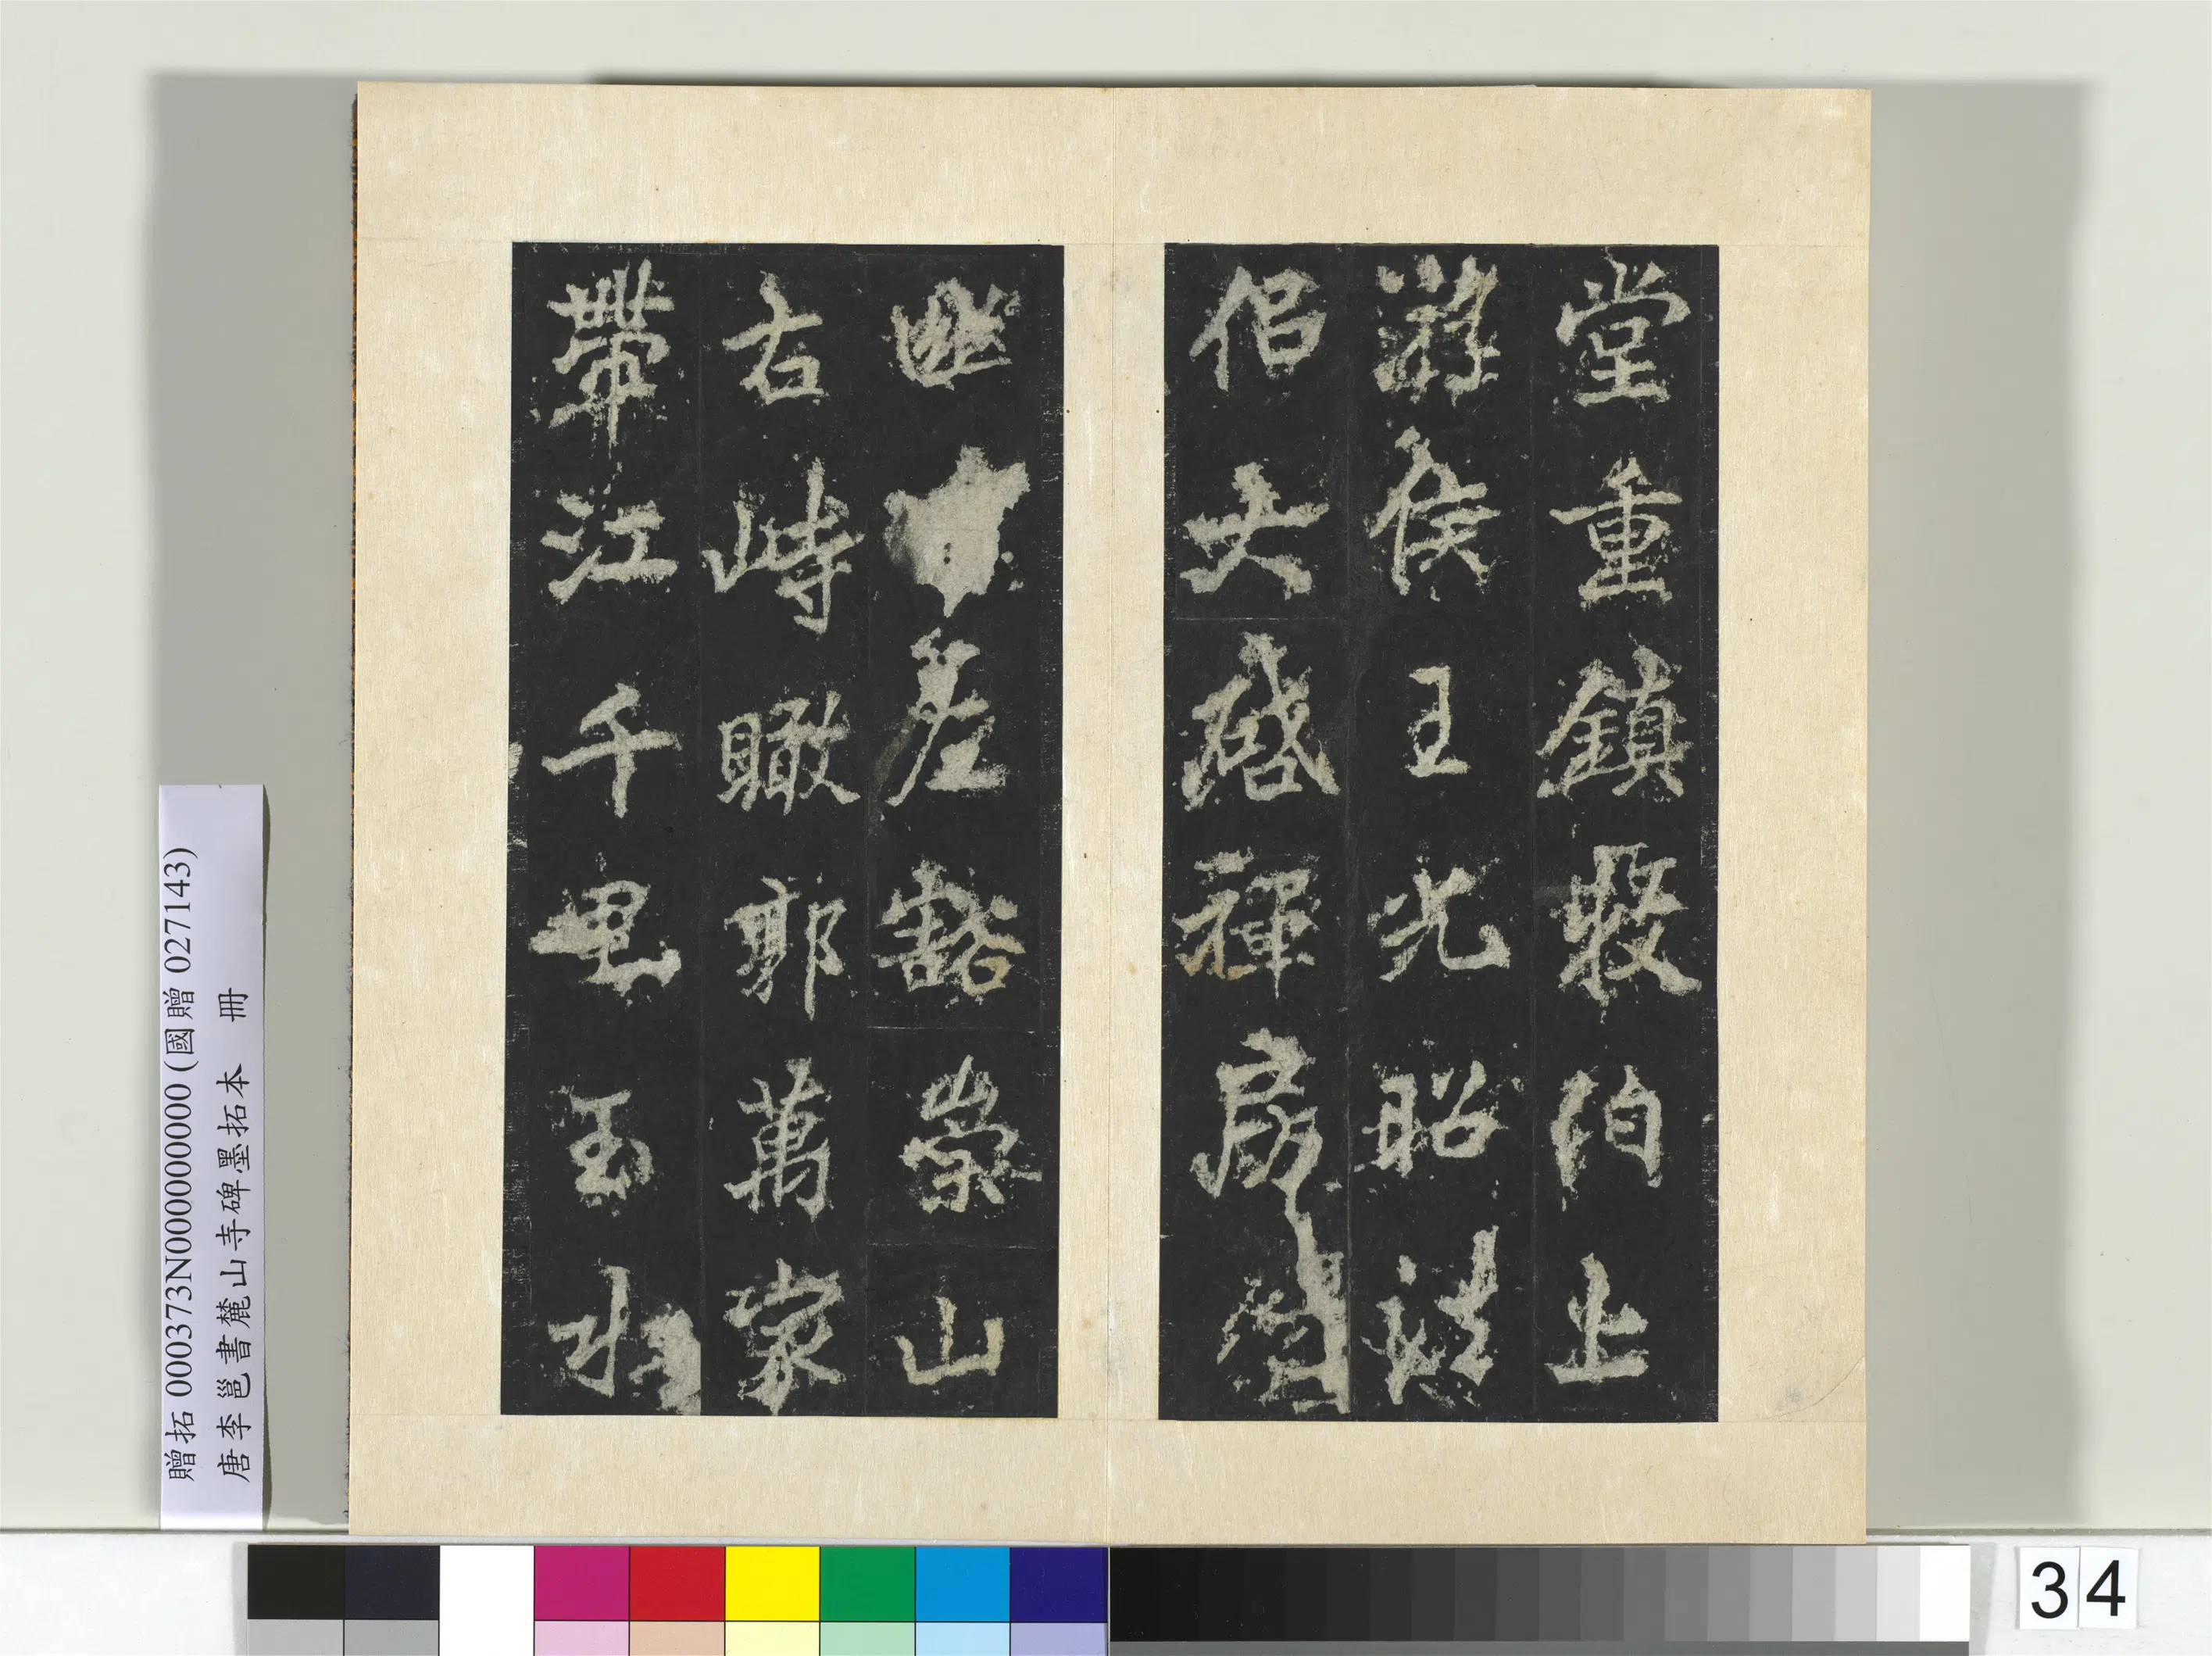 堂重鎮牧伯上
游侯王光昭法
侶大啓禪房
幽豁崇山
右峙瞰郭萬家
帶江千里玉水
贈拓 000373N000000000 (國贈 027143)
唐李邕書麓山寺碑墨拓本 冊
34